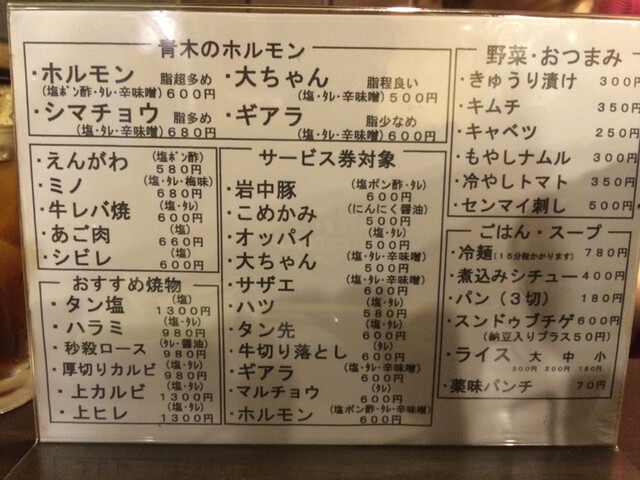 青木のホルモン
・ホルモン 脂超多め
(塩ポン酢・タレ・辛味噌)600円
・大ちゃん 脂程良い
(塩・タレ・辛味噌)500円
・シマチョウ 脂多め
(塩・タレ・辛味噌)680円
・ギアラ 脂少なめ
(塩・タレ・辛味噌)600円
・えんがわ (塩ポン酢) 580円
・ミノ (塩・タレ・梅味) 680円
・牛レバ焼 (塩・タレ) 600円
・あご肉 (塩) 660円
・シビレ (塩) 600円
おすすめ焼物
・タン塩 (塩) 1300円
・ハラミ (塩・タレ) 980円
・秒殺ロース (タレ・醤油) 980円
・厚切りカルビ (塩・タレ) 980円
・上カルビ (塩・タレ) 1300円
・上ヒレ (塩・タレ) 1300円
サービス券対象
・岩中豚 (塩ポン酢・タレ) 600円
・こめかみ (にんにく醤油) 500円
・オッパイ (塩・タレ) 500円
・大ちゃん (塩・タレ・辛味噌) 500円
・サザエ (塩・タレ・辛味噌) 600円
・ハツ (塩・タレ) 580円
・タン先 (塩・タレ) 600円
・牛切り落とし (タレ) 600円
・ギアラ (塩・タレ・辛味噌) 600円
・マルチョウ (タレ) 600円
・ホルモン (塩ポン酢・タレ・辛味噌) 600円
野菜・おつまみ
・きゅうり漬け 300円
・キムチ 350円
・キャベツ 250円
・もやしナムル 300円
・冷やしトマト 350円
・センマイ刺し 500円
ごはん・スープ
・冷麺(15分程かかります) 780円
・煮込みシチュー 400円
・パン(3切) 180円
・スンドゥブチゲ 600円
(納豆入りプラス50円)
・ライス 大 中 小
300円 200円 180円
・薬味パンチ 70円